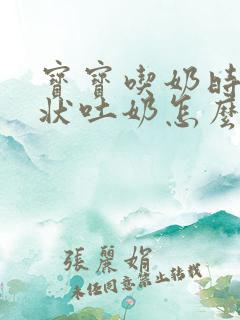 寶寶喫奶時
狀吐奶怎麼
張麗娟
未任同意禁止轉載